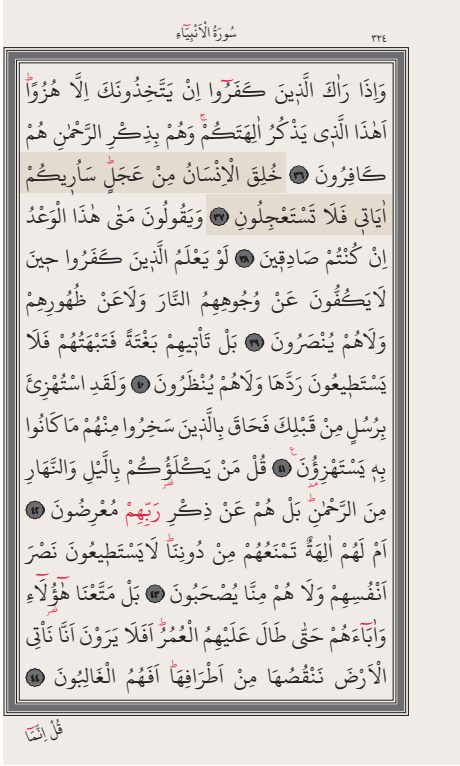 سُورَةُ الْاَنْبِيَٓاءِ
٣٢٤
وَاِذَا رَاٰكَ الَّذ۪ينَ كَفَرُٓوا اِنْ يَتَّخِذُونَكَ اِلَّا هُزُوًاۜ
اَهٰذَا الَّذ۪ي يَذْكُرُ اٰلِهَتَكُمْۚ وَهُمْ بِذِكْرِ الرَّحْمٰنِ هُمْ
كَافِرُونَ ﴿٣٦﴾ خُلِقَ الْاِنْسَانُ مِنْ عَجَلٍۜ سَاُر۪يكُمْ
اٰيَات۪ي فَلَا تَسْتَعْجِلُونِ ﴿٣٧﴾ وَيَقُولُونَ مَتٰى هٰذَا الْوَعْدُ
اِنْ كُنْتُمْ صَادِق۪ينَ ﴿٣٨﴾ لَوْ يَعْلَمُ الَّذ۪ينَ كَفَرُوا ح۪ينَ
لَايَكُفُّونَ عَنْ وُجُوهِهِمُ النَّارَ وَلَاعَنْ ظُهُورِهِمْ
وَلَاهُمْ يُنْصَرُونَ ﴿٣٩﴾ بَلْ تَأْت۪يهِمْ بَغْتَةً فَتَبْهَتُهُمْ فَلَا
يَسْتَط۪يعُونَ رَدَّهَا وَلَاهُمْ يُنْظَرُونَ ﴿٤٠﴾ وَلَقَدِ اسْتُهْزِئَ
بِرُسُلٍ مِنْ قَبْلِكَ فَحَاقَ بِالَّذ۪ينَ سَخِرُوا مِنْهُمْ مَاكَانُوا
بِه۪ يَسْتَهْزِؤُ۫نَ ﴿٤١﴾ قُلْ مَنْ يَكْلَؤُ۬كُمْ بِالَّيْلِ وَالنَّهَارِ
مِنَ الرَّحْمٰنِۜ بَلْ هُمْ عَنْ ذِكْرِ رَبِّهِمْ مُعْرِضُونَ ﴿٤٢﴾
اَمْ لَهُمْ اٰلِهَةٌ تَمْنَعُهُمْ مِنْ دُونِنَاۜ لَايَسْتَط۪يعُونَ نَصْرَ
اَنْفُسِهِمْ وَلَا هُمْ مِنَّا يُصْحَبُونَ ﴿٤٣﴾ بَلْ مَتَّعْنَا هٰٓؤُ۬لَٓاءِ
وَاٰبَٓاءَهُمْ حَتّٰى طَالَ عَلَيْهِمُ الْعُمُرُۜ اَفَلَا يَرَوْنَ اَنَّا نَأْتِي
الْاَرْضَ نَنْقُصُهَا مِنْ اَطْرَافِهَاۜ اَفَهُمُ الْغَالِبُونَ ﴿٤٤﴾
قُلْ اِنَّمَٓا